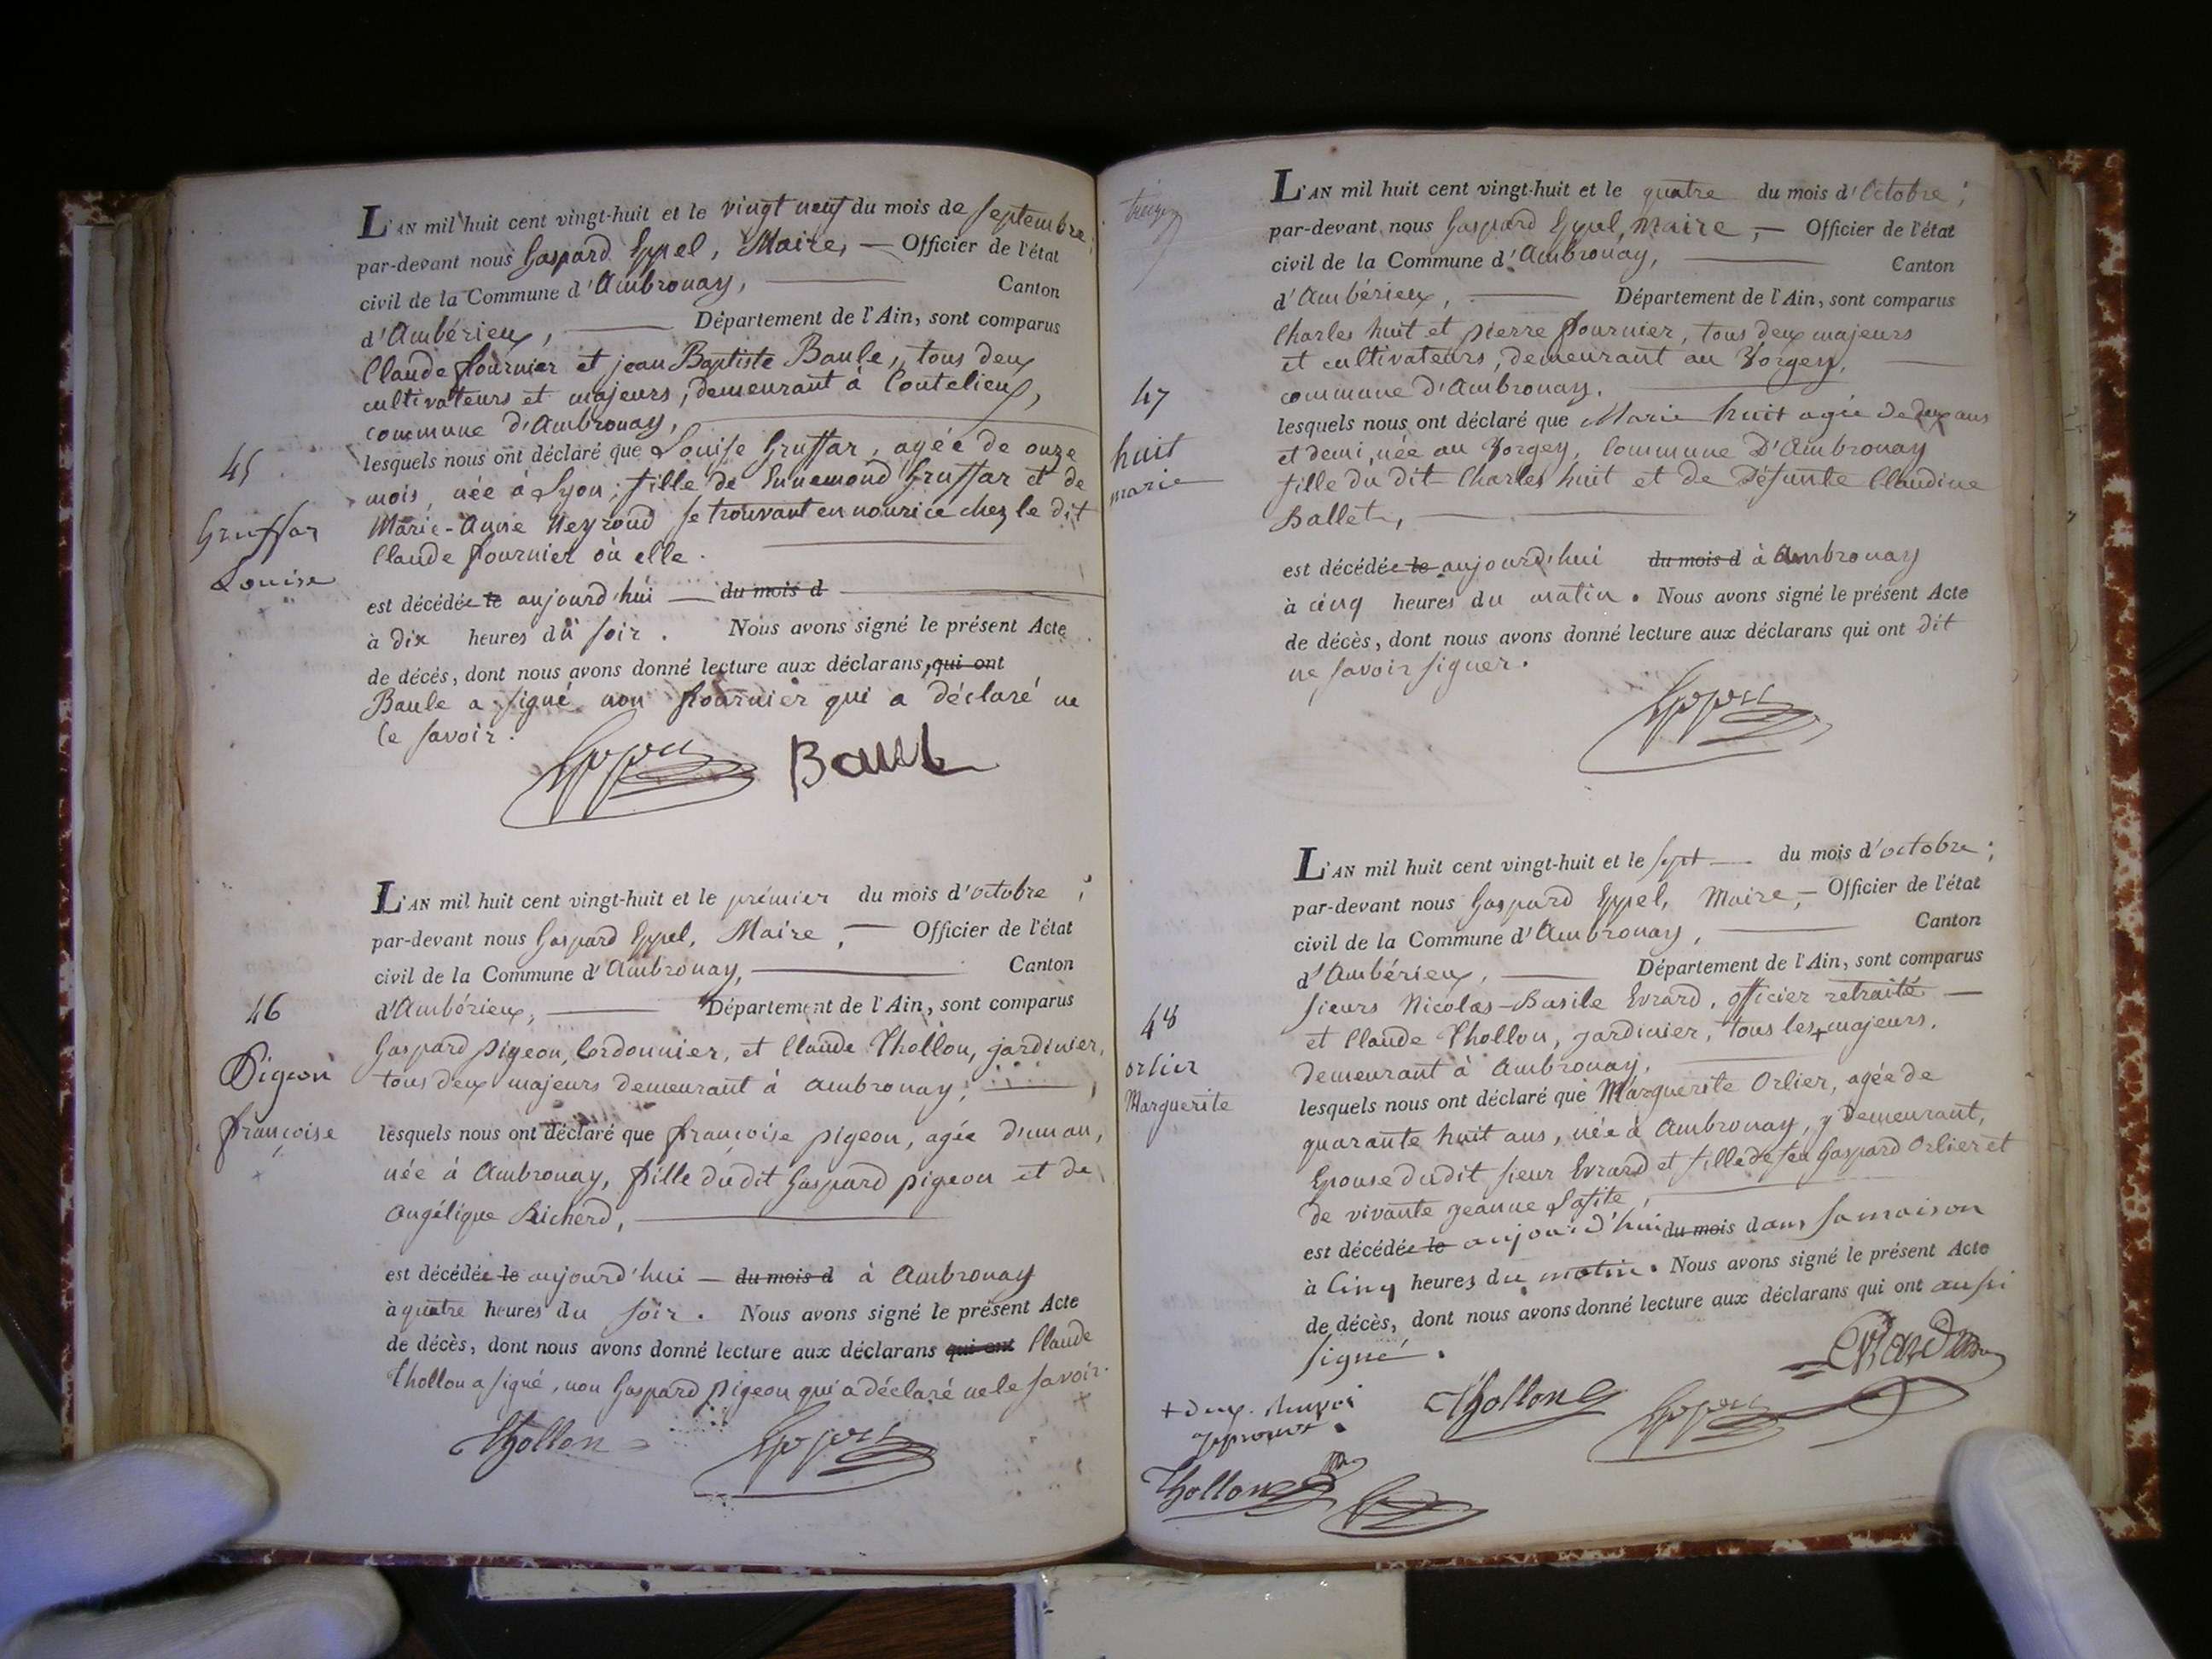 L'AN mil huit cent vingt-huit et le vingt neuf du mois de septembre;
par-devant nous Gaspard Eppel, Maire, — Officier de l'état
civil de la Commune d'Ambronay, — Canton
d'Ambérieux, — Département de l'Ain, sont comparus
Claude fournier et jean Baptiste Baule, tous deux
cultivateurs et majeurs, demeurant à Coutelieux,
commune d'Ambronay,
45
lesquels nous ont déclaré que Louise Gruffar, agée de onze
mois, née à Lyon, fille de Ennemond Gruffar et de
Gruffar
Marie-Anne Neyroud se trouvant en nourice chez le dit
Claude fournier où elle.
Louise
est décédée le aujourd'hui — du mois d —
à dix heures du soir. Nous avons signé le présent Acte
de décés, dont nous avons donné lecture aux déclarans, qui ont
Baule a signé non fournier qui a déclaré ne
le savoir.
Eppel Baule
L'AN mil huit cent vingt-huit et le prémier du mois d'octobre;
par-devant nous Gaspard Eppel, Maire, — Officier de l'état
civil de la Commune d'Ambronay, — Canton
46
d'Ambérieux, — Département de l'Ain, sont comparus
Gaspard pigeon, Cordonnier, et Claude Thollon, jardinier,
Pigeon
tous deux majeurs demeurant à ambronay; —
françoise
lesquels nous ont déclaré que françoise pigeon, agée d'un an,
née à Ambronay, fille du dit Gaspard pigeon et de
Angélique Richerd, —
est décédée le aujourd'hui — du mois d à Ambronay
à quatre heures du soir. Nous avons signé le présent Acte
de décès, dont nous avons donné lecture aux déclarans qui ont Claude
Thollon a signé, non Gaspard pigeon qui a déclaré ne le savoir.
Thollon Eppel
L'AN mil huit cent vingt-huit et le quatre du mois d'Octobre;
par-devant nous Gaspard Eppel, Maire, — Officier de l'état
civil de la Commune d'Ambronay, — Canton
d'Ambérieux, — Département de l'Ain, sont comparus
Charles huit et pierre fournier, tous deux majeurs
et cultivateurs, demeurant au Vorgey, —
47
commune d'Ambronay. —
lesquels nous ont déclaré que Marie huit agée de deux ans
huit
et demi, née au Vorgey, Commune D'Ambronay
marie
fille du dit Charles huit et de Défunte Claudine
Ballet, —
est décédée le aujourd'hui du mois d à Ambronay
à cinq heures du matin. Nous avons signé le présent Acte
de décès, dont nous avons donné lecture aux déclarans qui ont dit
ne savoir signer.
Eppel
L'AN mil huit cent vingt-huit et le sept — du mois d'octobre;
par-devant nous Gaspard Eppel, Maire, — Officier de l'état
civil de la Commune d'Ambronay, — Canton
d'Ambérieux, — Département de l'Ain, sont comparus
sieurs Nicolas-Basile Evrard, officier retraité —
48
et Claude Thollon, jardinier, tous les + majeurs,
orlier
demeurant à Ambronay,
Marguerite
lesquels nous ont déclaré que Marguerite Orlier, agée de
quarante huit ans, née à Ambronay, y demeurant,
Epouse du dit sieur Evrard et fille de feu Gaspard Orlier et
de vivante jeanne
est décédée le aujourd'hui du mois dans sa maison
à Cinq heures du matin. Nous avons signé le présent Acte
de décès, dont nous avons donné lecture aux déclarans qui ont aussi
signé.
Evrard
+ deux. Renvoi
approuvé.
Thollon Eppel
Thollon